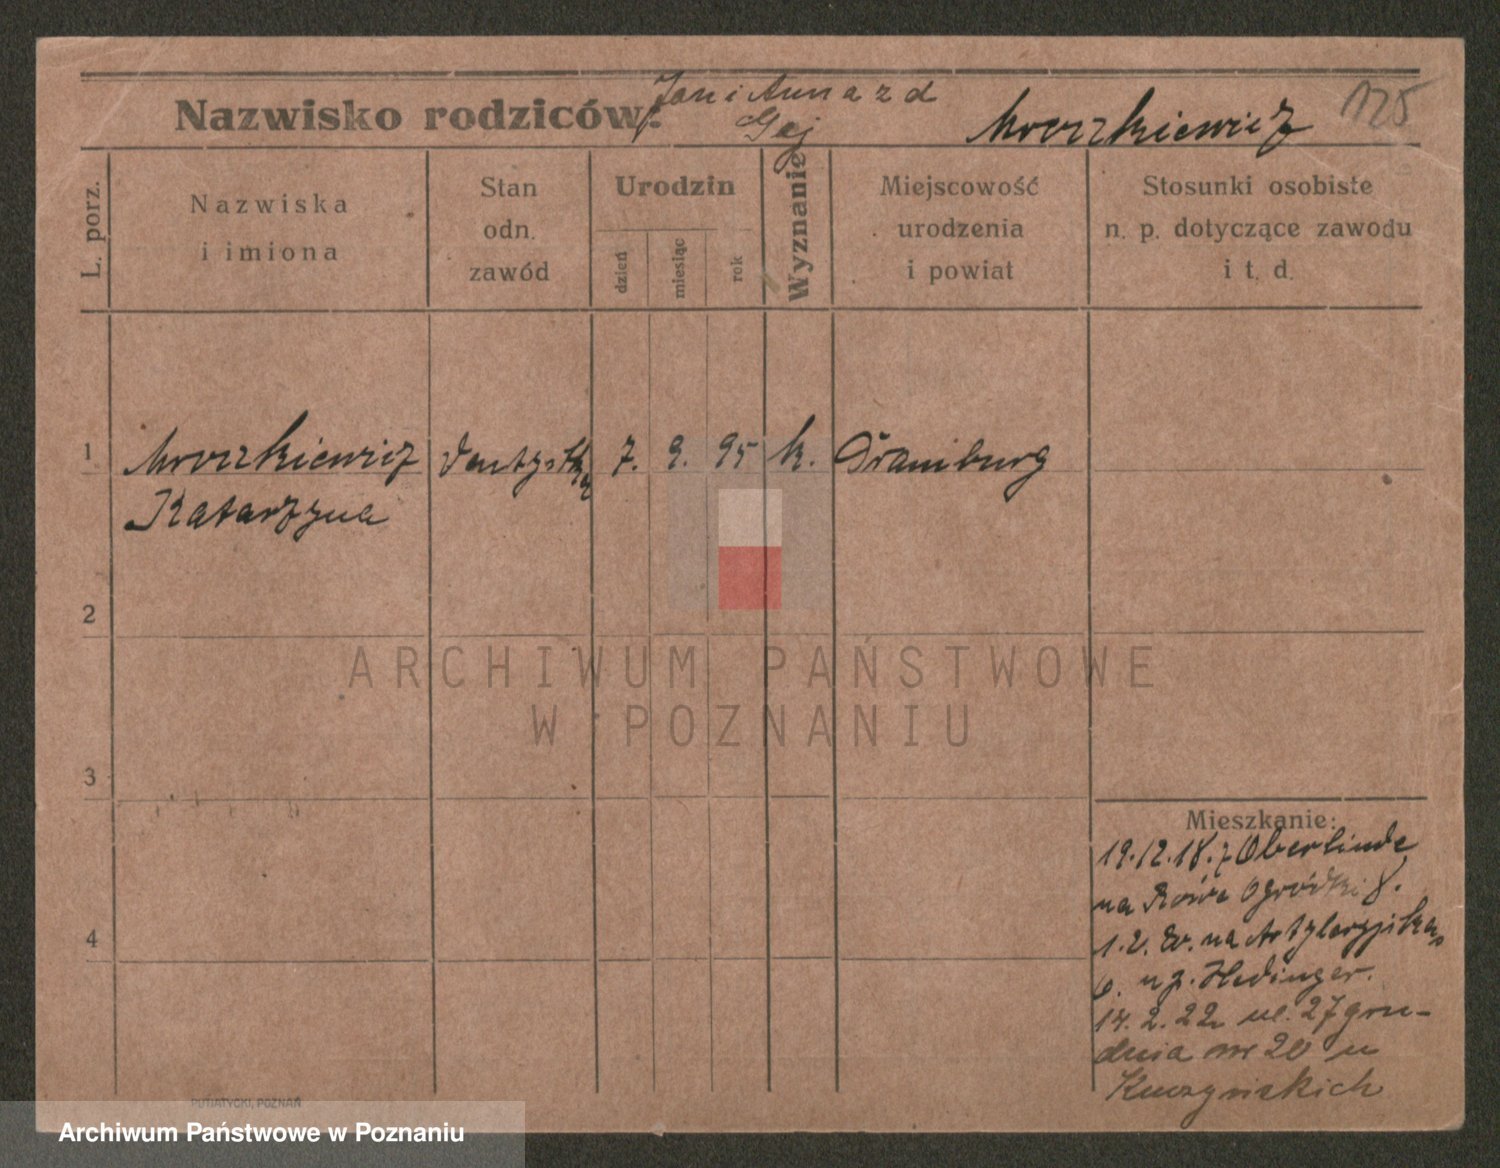 Nazwisko rodziców: Jan i Anna z d
Gej
Mroczkiewicz
125
L. porz.
Nazwiska
i imiona
Stan
odn.
zawód
Urodzin
dzień
miesiąc
rok
Wyznanie
Miejscowość
urodzenia
i powiat
Stosunki osobiste
n. p. dotyczące zawodu
i t. d.
1
Mroczkiewicz dentystka 7. 9. 95 k. Oraniburg
Katarzyna
2
3
4
Mieszkanie:
19.12.18. z Oberlinde
na Rówe Ogródki 8.
1.2. 20. na Artyleryjska
6. u p. Hedinger.
14. 2. 22 ul. 27 gru-
dnia nr 20 u
Kuczyńskich
PUTIATYCKI, POZNAŃ
ARCHIWUM PAŃSTWOWE
W POZNANIU
Archiwum Państwowe w Poznaniu